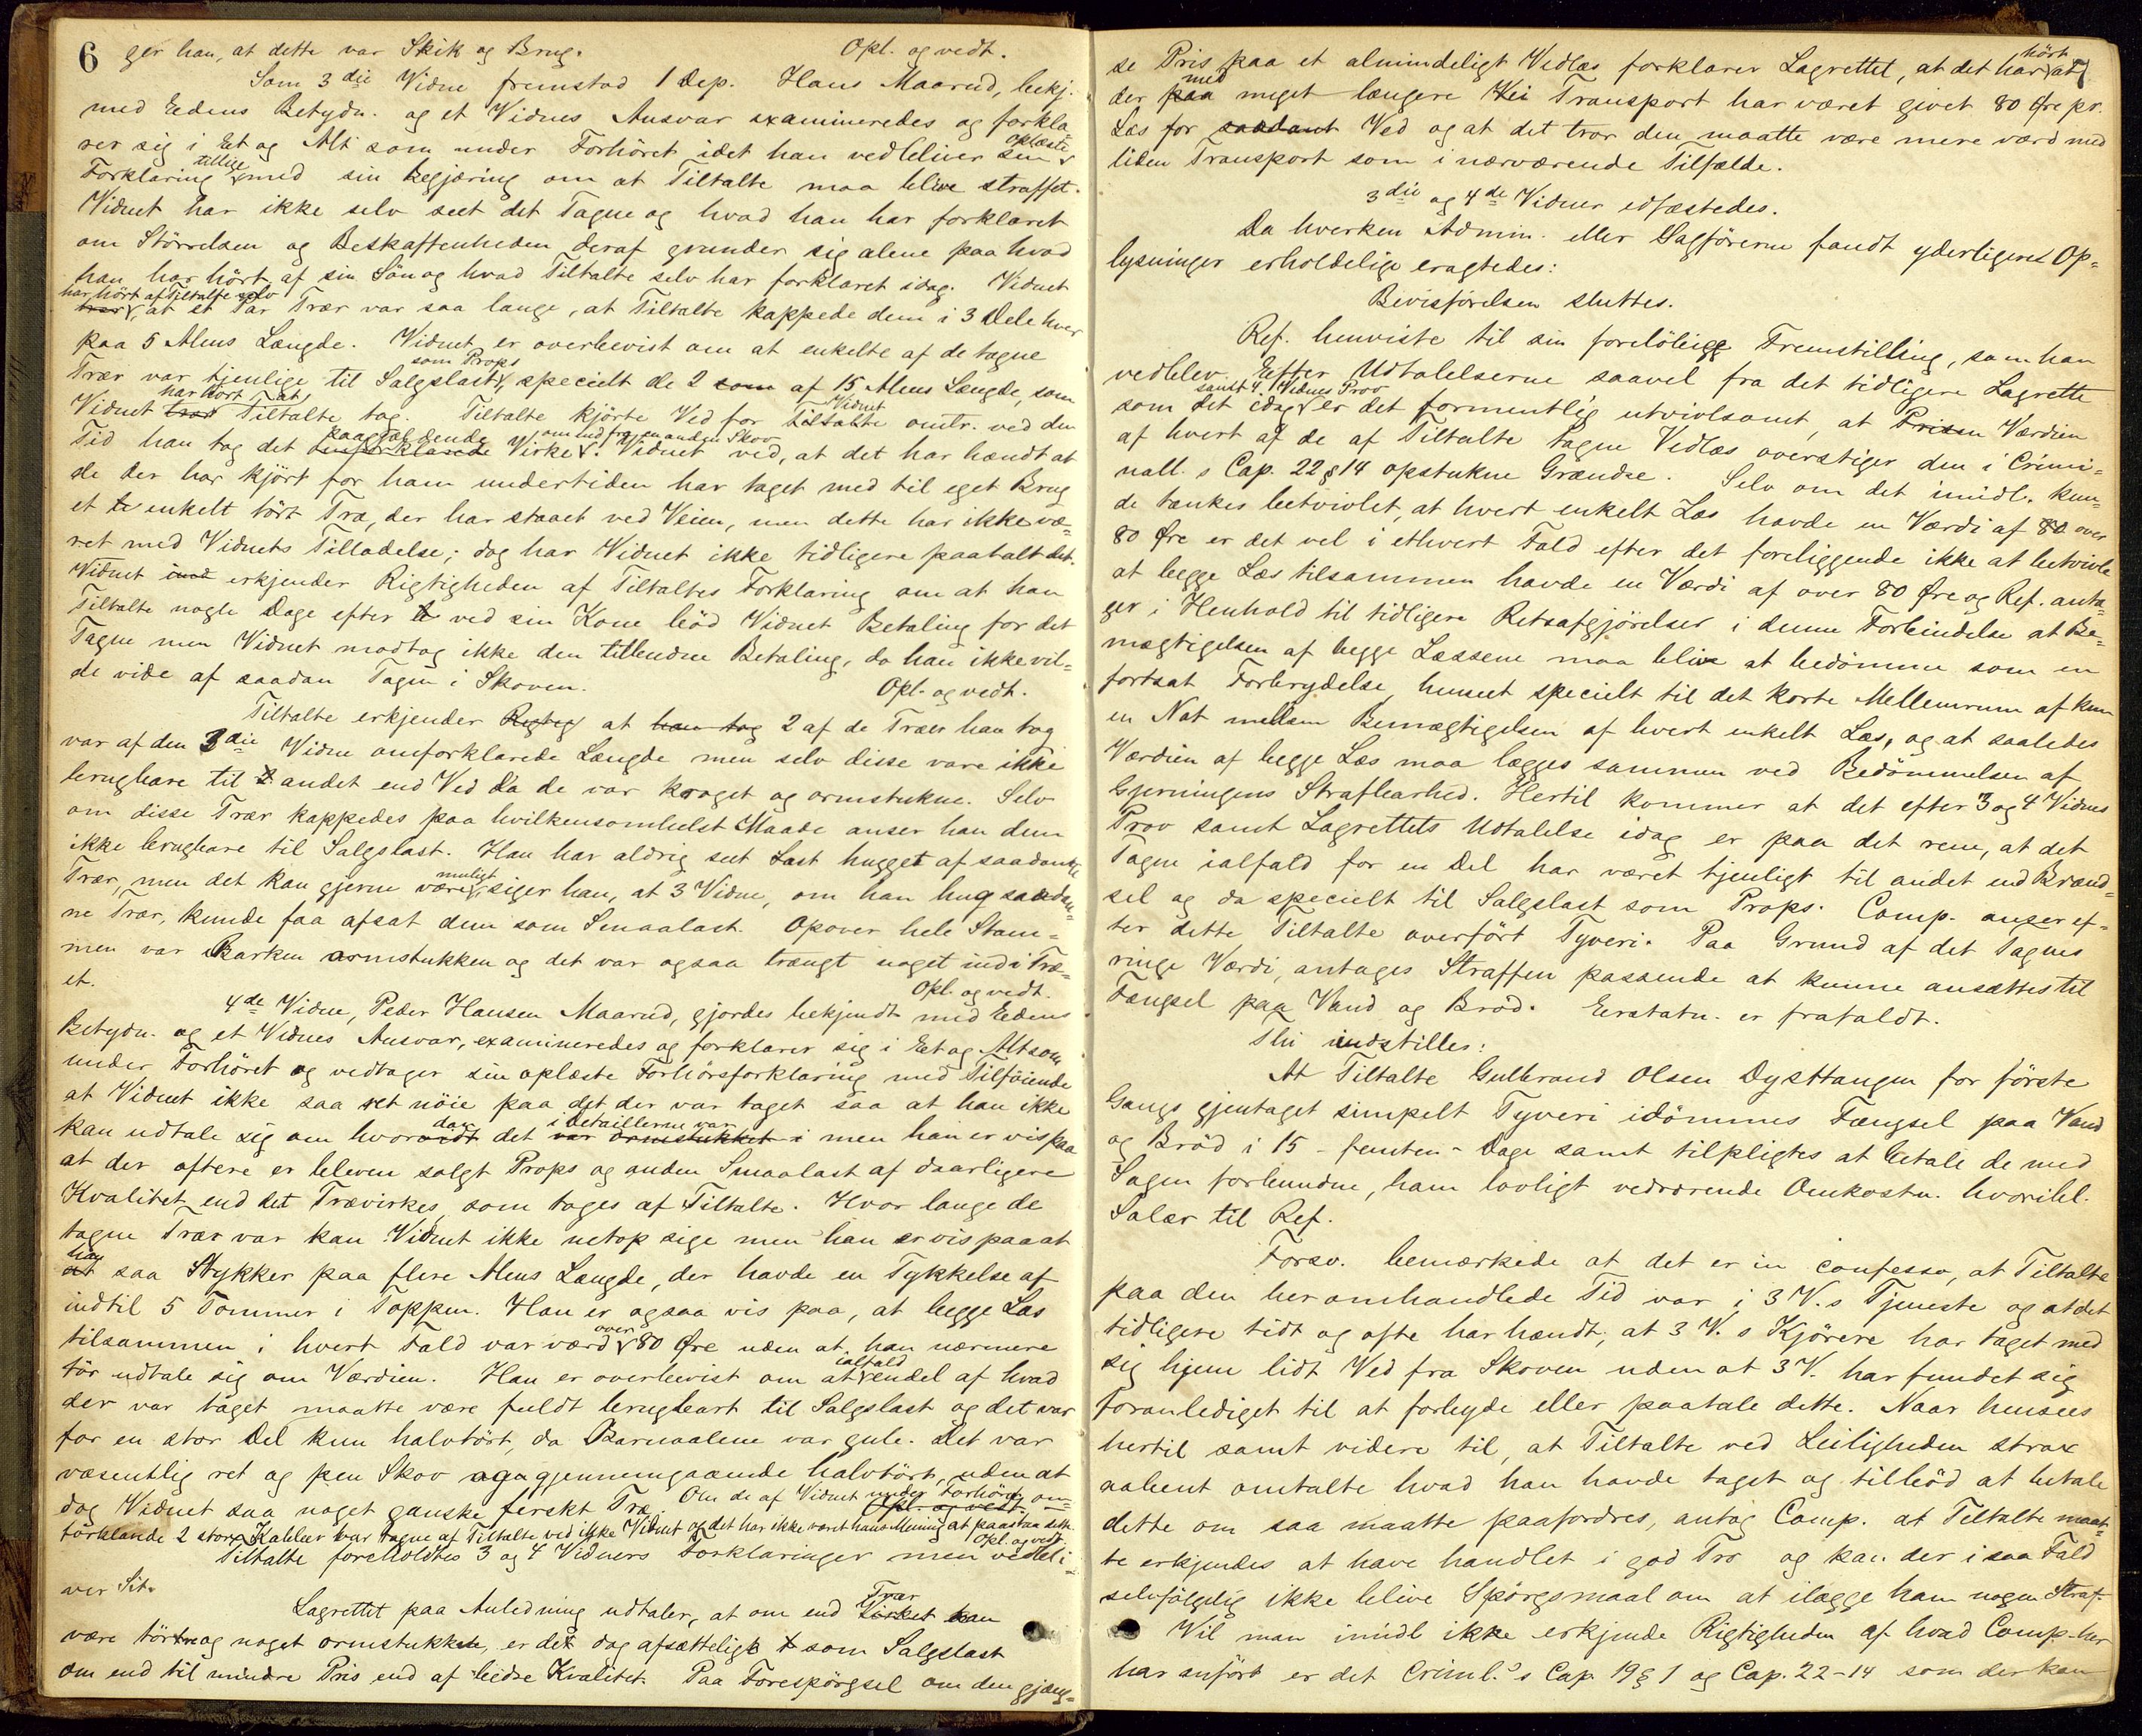 6 ger han, at dette var Skik og Brug. Opl. og vedt.
Som 3die Vidne fremstod 1 Dep. Hans Maarud, bekj.
med Eedens Betydn. og et Vidnes Ansvar examineredes og forkla-
rer sig i Eet og Alt som under Forhöret idet han vedbliver sin oplæste
Forklaring tillige med sin Begjæring om at Tiltalte maa blive straffet.
Vidnet har ikke selv seet det Tagne og hvad han har forklaret
om Störrelsen og Beskaffenheden deraf grunder sig alene paa hvad
han har hört af sin Sön og hvad Tiltalte selv har forklaret idag. Vidnet
har hört af Tiltalte selv, at et Par Trær var saa lange, at Tiltalte kappede dem i 3 Dele hver
paa 5 Alens Længde. Vidnet er overbevist om at enkelte af de tagne
Trær var tjenlige til Salgslast som Props, specielt de 2 som af 15 Alens Længde, som
Vidnet har hört at Tiltalte tog. Tiltalte kjörte Ved for Vidnet omtr. ved den
Tid han tog det paagjældende Virke om end fra en anden Skov. Vidnet ved, at det har hændt at
de der har kjört for ham undertiden har taget med til eget Brug
et te enkelt tört Træ, der har staaet ved Veien, men dette har ikke væ-
ret med Vidnets Tilladelse; dog har Vidnet ikke tidligere paatalt det.
Vidnet ind erkjender Rigtigheden af Tiltaltes Forklaring om at han
Tiltalte nogle Dage efter ved sin Kone böd Vidnet Betaling for det
Tagne men Vidnet modtog ikke den tilbudne Betaling, da han ikke vil-
de vide af saadan Tagen i Skoven. Opl. og vedt.
Tiltalte erkjender Rigtig at han tog 2 af de Træer han tog
var af den 3die Vidne omforklarede Længde men selv disse vare ikke
brugbare til andet end Ved da de var kroget og ormstukne. Selv
om disse Trær kappedes paa hvilkensomhelst Maade anser han dem
ikke brugbare til Salgslast. Han har aldrig seet Last hugget af saadanne
Trær, men det kan gjerne være muligt, siger han, at 3 Vidne, om han hug saadan-
ne Trær, kunde faa afsat dem som Smaalast. Opover hele Stam-
men var Barken ormstukken og det var ogsaa trængt noget ind i Træ-
et. Opl. og vedt.
4de Vidne, Peder Hansen Maarud, gjordes bekjendt med Eedens
Betydn. og et Vidnes Ansvar, examineredes og forklarer sig i Eet og Alt som
under Forhöret og vedtager sin oplæste Forhörsforklaring med Tilföiende
at Vidnet ikke saa ret nöie paa det der var taget saa at han ikke
kan udtale sig om hvordan det i Detaillerne var men han er vis paa
at der oftere er bleven solgt Props og anden Smaalast af daarligere
Kvalitet end det Trævirke, som toges af Tiltalte. Hvor lange de
tagne Trær var kan Vidnet ikke netop sige men han er vis paa at
han saa Stykker paa flere Alens Længde, der havde en Tykkelse af
indtil 5 Tommer i Toppen. Han er ogsaa vis paa, at begge Læs
tilsammen i hvert Fald var værd over 80 Øre uden at han nærmere
tör udtale sig om Værdien. Han er overbevist om at ialfald endel af hvad
der var taget maatte være fuldt brugbart til Salgslast og det var
for en stor Del kun halvtört, da Barnaalene var gule. Det var
væsentlig ret og pen Skov og gjennemgaaende halvtört, uden at
dog Vidnet saa noget ganske ferskt Træ. Om de af Vidnet under Forhöret om-
forklarede 2 store Kabber var tagne af Tiltalte ved ikke Vidnet og det har ikke været hans Mening at paastaa dette. Opl. og vedt.
Tiltalte foreholdtes 3 og 4 Vidners Forklaringer men vedbli-
ver Sit.
Lagrettet paa Anledning udtaler, at om end Trær kan
være törre og noget ormstukken, er det dog afsætteligt som Salgslast
om end til mindre Pris end af bedre Kvalitet. Paa Forespörgsel om den gjæng-
se Pris paa et almindeligt Vedlæs forklarer Lagrettet, at det har hört at
der med meget længere Vei Transport har været givet 80 Øre pr.
Læs for saadant Ved og at det tror den maatte være mere værd med
liden Transport som i nærværende Tilfælde.
3die og 4de Vidner edfæstedes.
Da hverken Admin. eller Sagförerne fandt yderligere Op-
lysninger erholdelige eragtedes:
Bevisförelsen sluttes.
Ref. henviste til sin forelöbige Fremstilling, som han
vedblev. Efter Udtalelserne saavel fra det tidligere Lagrette
som det idag samt 4 Vidnes Prov er det formentlig utvivlsomt, at Prisen Værdien
af hvert af de af Tiltalte tagne Vedlæs overstiger den i Crimi-
nall.s Cap. 22 § 14 opstukne Grændse. Selv om det imidl. kun-
de tænkes betvivlet, at hvert enkelt Læs havde en Værdi af 80 over
80 Øre er det vel i ethvert Fald efter det foreliggende ikke at betvivle
at begge Læs tilsammen havde en Værdi af over 80 Øre og Ref. anta-
ger i Henhold til tidligere Retsafgjörelser i denne Forbindelse at Be-
mægtigelsen af begge Læssene maa blive at bedömme som en
fortsat Forbrydelse, henseet specielt til det korte Mellemrum af kun
en Nat mellem Bemægtigelsen af hvert enkelt Læs, og at saaledes
Værdien af begge Læs maa lægges sammen ved Bedömmelsen af
Gjerningens Strafbarhed. Hertil kommer at det efter 3 og 4 Vidnes
Prov samt Lagrettets Udtalelse idag er paa det rene, at det
Tagne ialfald for en Del har været tjenligt til andet end Brænd-
sel og da specielt til Salgslast som Props. Comp. anser ef-
ter dette Tiltalte overfört Tyveri. Paa Grund af det Tagnes
ringe Værdi, antages Straffen passende at kunne ansættes til
Fængsel paa Vand og Bröd. Erstatn. er frafaldt.
Thi indstilles:
At Tiltalte Gulbrand Olsen Dysttangen for förste
Gangs gjentaget simpelt Tyveri idömmes Fængsel paa Vand
og Bröd i 15 - femten - Dage samt tilpligtes at betale de med
Sagen forbundne, ham lovligt vedrørende Omkostn. hvoribl.
Salær til Ref.
Forsv. bemærkede at det er in confesso, at Tiltalte
paa den heromhandlede Tid var i 3 V.s Tjeneste og at det
tidligere tidt og ofte har hændt, at 3 V.s Kjörere har taget med
sig hjem lidt Ved fra Skoven uden at 3 V. har fundet sig
foranlediget til at forbyde eller paatale dette. Naar hensees
hertil samt videre til, at Tiltalte ved Leiligheden strax
aabent omtalte hvad han havde taget og tilböd at betale
dette om saa maatte paafordres, antog Comp. at Tiltalte maat-
te erkjendes at have handlet i god Tro og kan der i saa Fald
selvfölgelig ikke blive Spörgsmaal om at ilægge ham nogen Straf.
Vil man imidl ikke erkjende Rigtigheden af hvad Comp. her
har anfört er det Criml.'s Cap. 19 § 1 og Cap. 22-14 som der kan